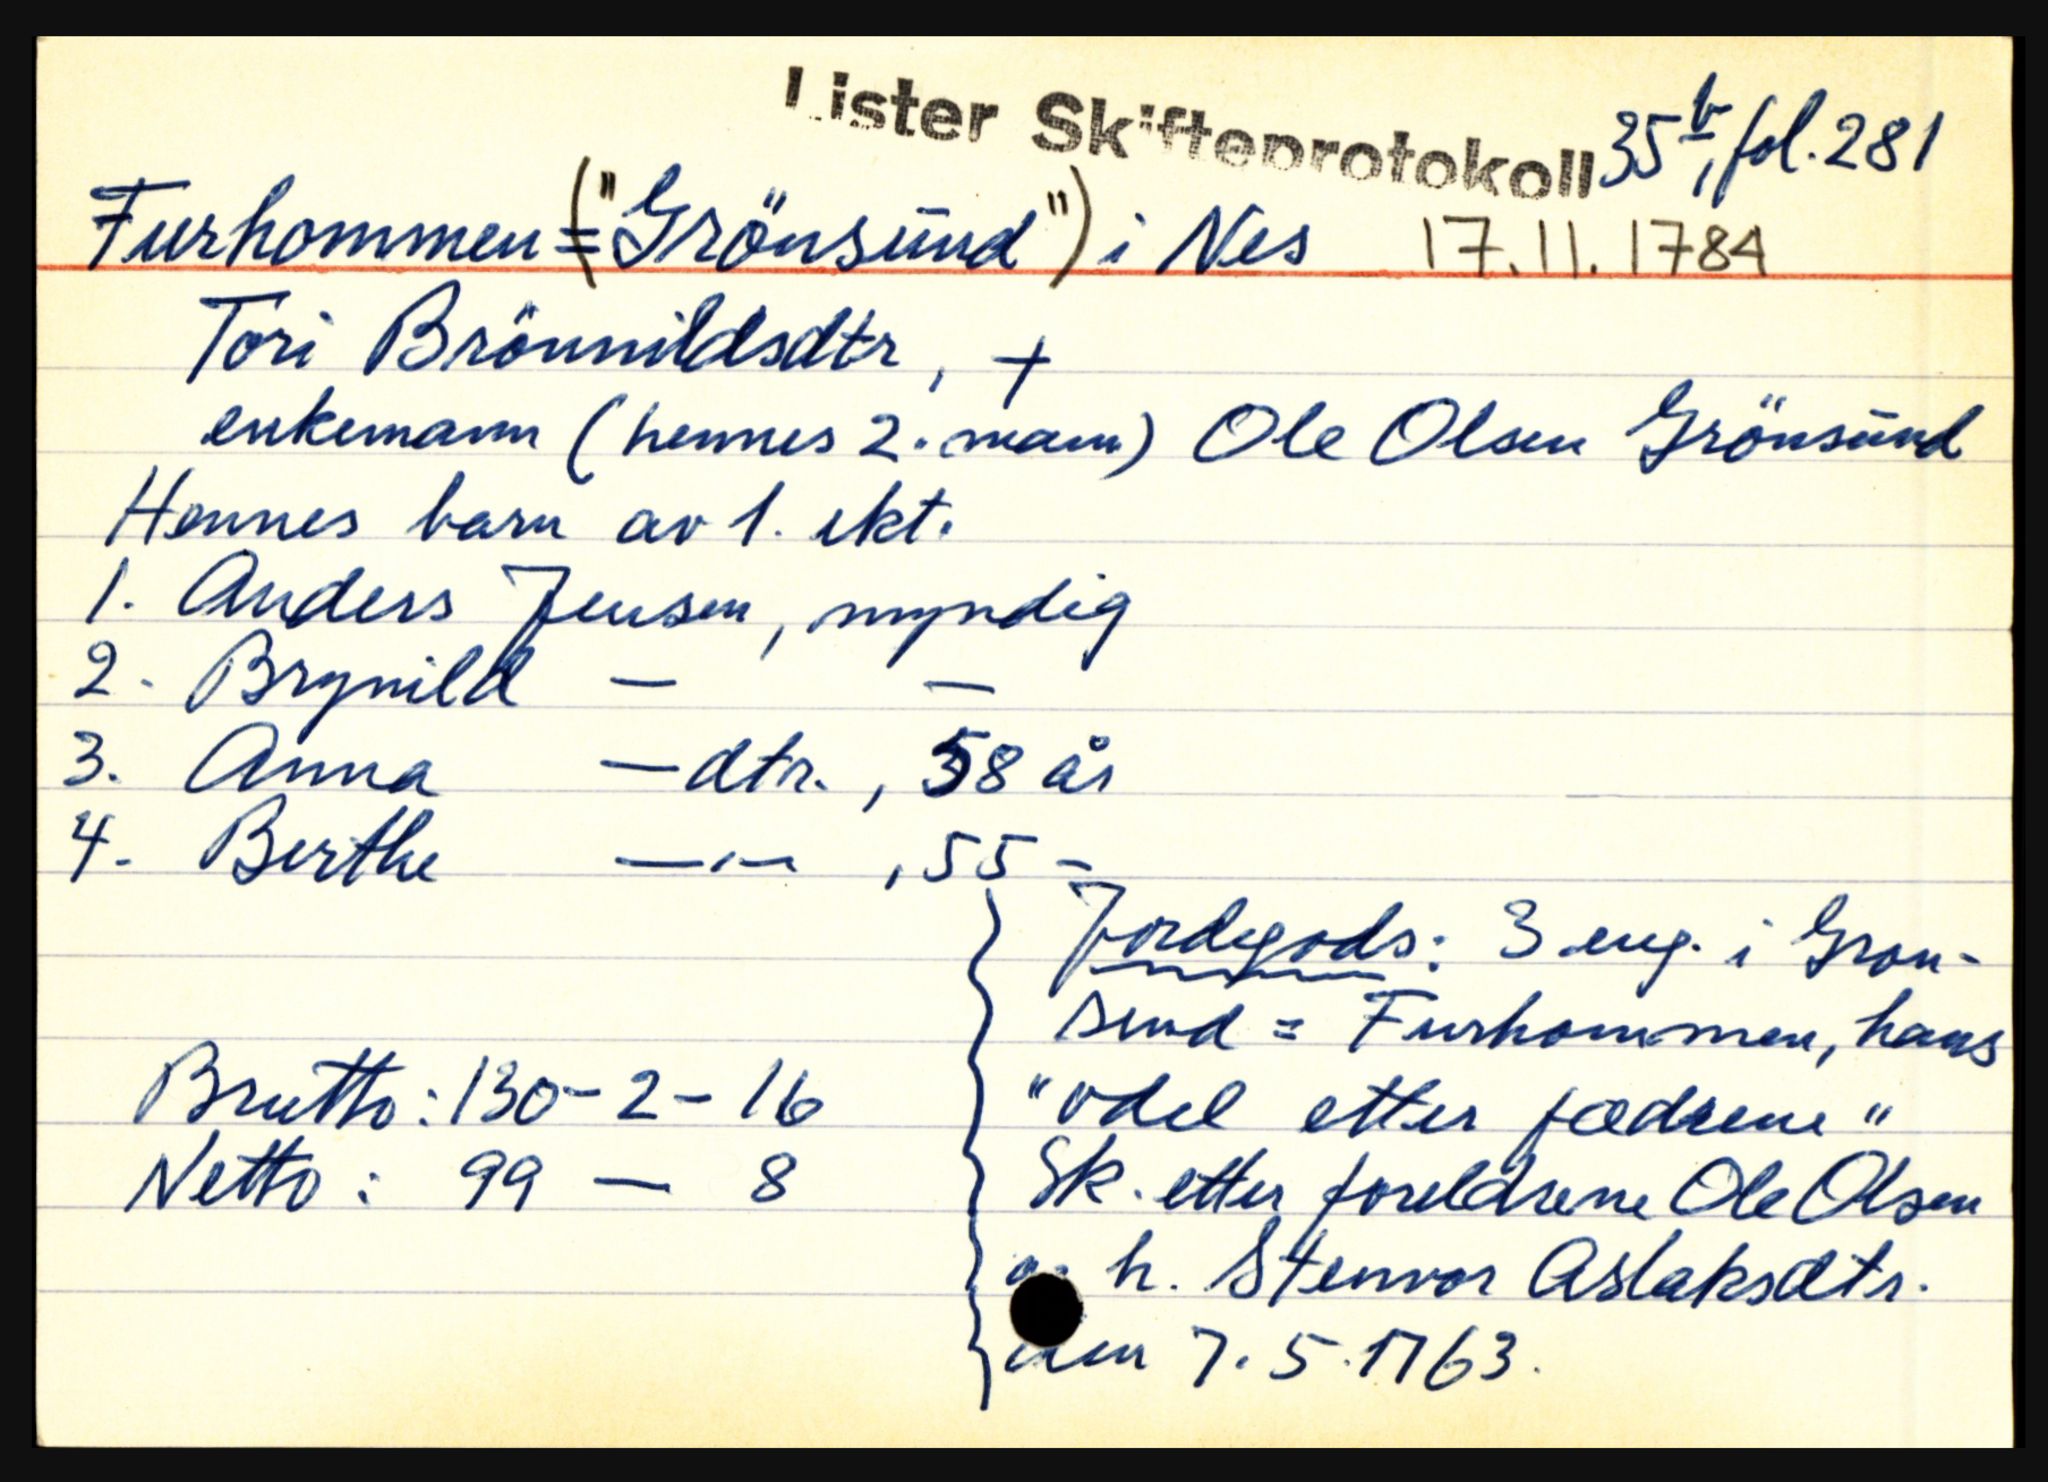 Lister Skifteprotokoll 35b, fol. 281
Furhommen (= "Grönsund") i Nes 17.11.1784
Tori Brönnildsdtr, +
enkemann (hennes 2. mann) Ole Olsen Grönsund
Hennes barn av 1. ekt.
1. Anders Jensen, myndig
2. Brynild — —
3. Anna — dtr., 58 år
4. Berthe — " —, 55 -
Jordegods: 3 eng. i Gron-
sund = Furhommen, hans
"odel etter fædrene"
Brutto: 130 - 2 - 16
Netto: 99 — 8
Sk. etter foreldrene Ole Olsen
h. Stenvor Aslaksdtr.
den 7.5.1763.